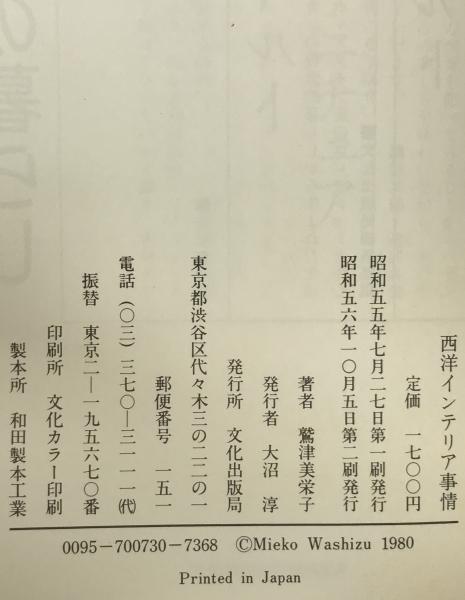 西洋インテリア事情
定価　一七〇〇円
昭和五五年七月二七日第一刷発行
昭和五六年一〇月五日第二刷発行
著者　鷲津美栄子
発行者　大沼　淳
発行所　文化出版局
東京都渋谷区代々木三の二二の一
郵便番号　一五一
電話（〇三）三七〇―三一一一㈹
振替　東京二―一九五六七〇番
印刷所　文化カラー印刷
製本所　和田製本工業
0095－700730－7368　©Mieko Washizu 1980
Printed in Japan